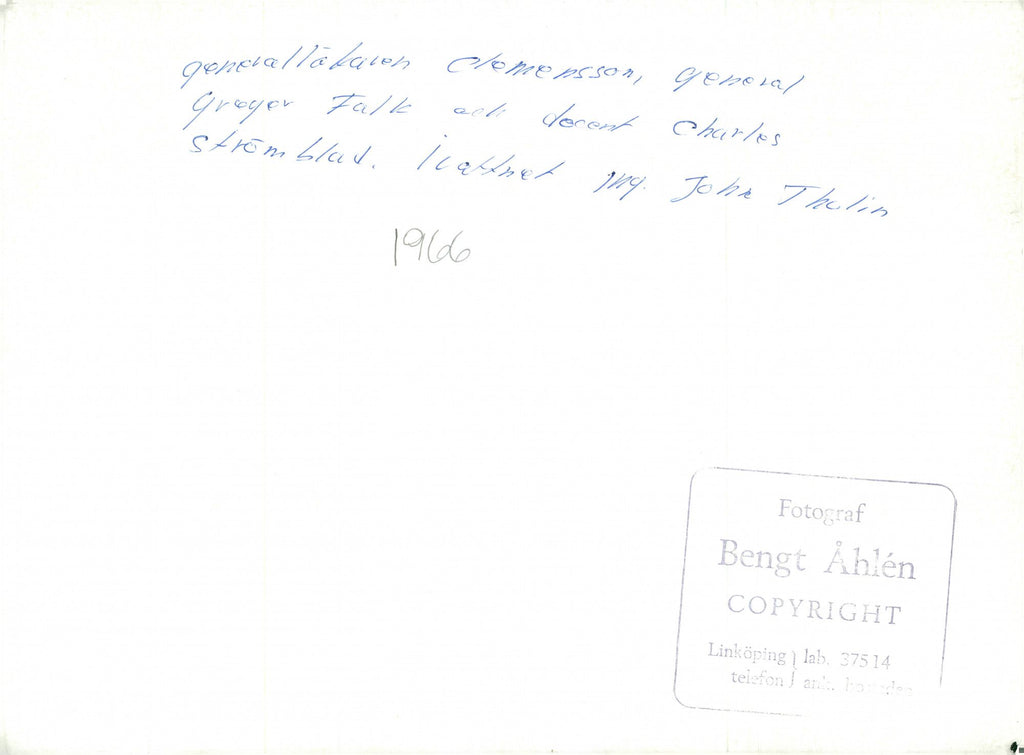 generalläkaren Clemensson, general
Greger Falk och docent Charles
Strömblad. I vattnet ing. John Tholin
1966
Fotograf
Bengt Åhlén
COPYRIGHT
Linköping } lab. 37514
telefon } ank. bostaden